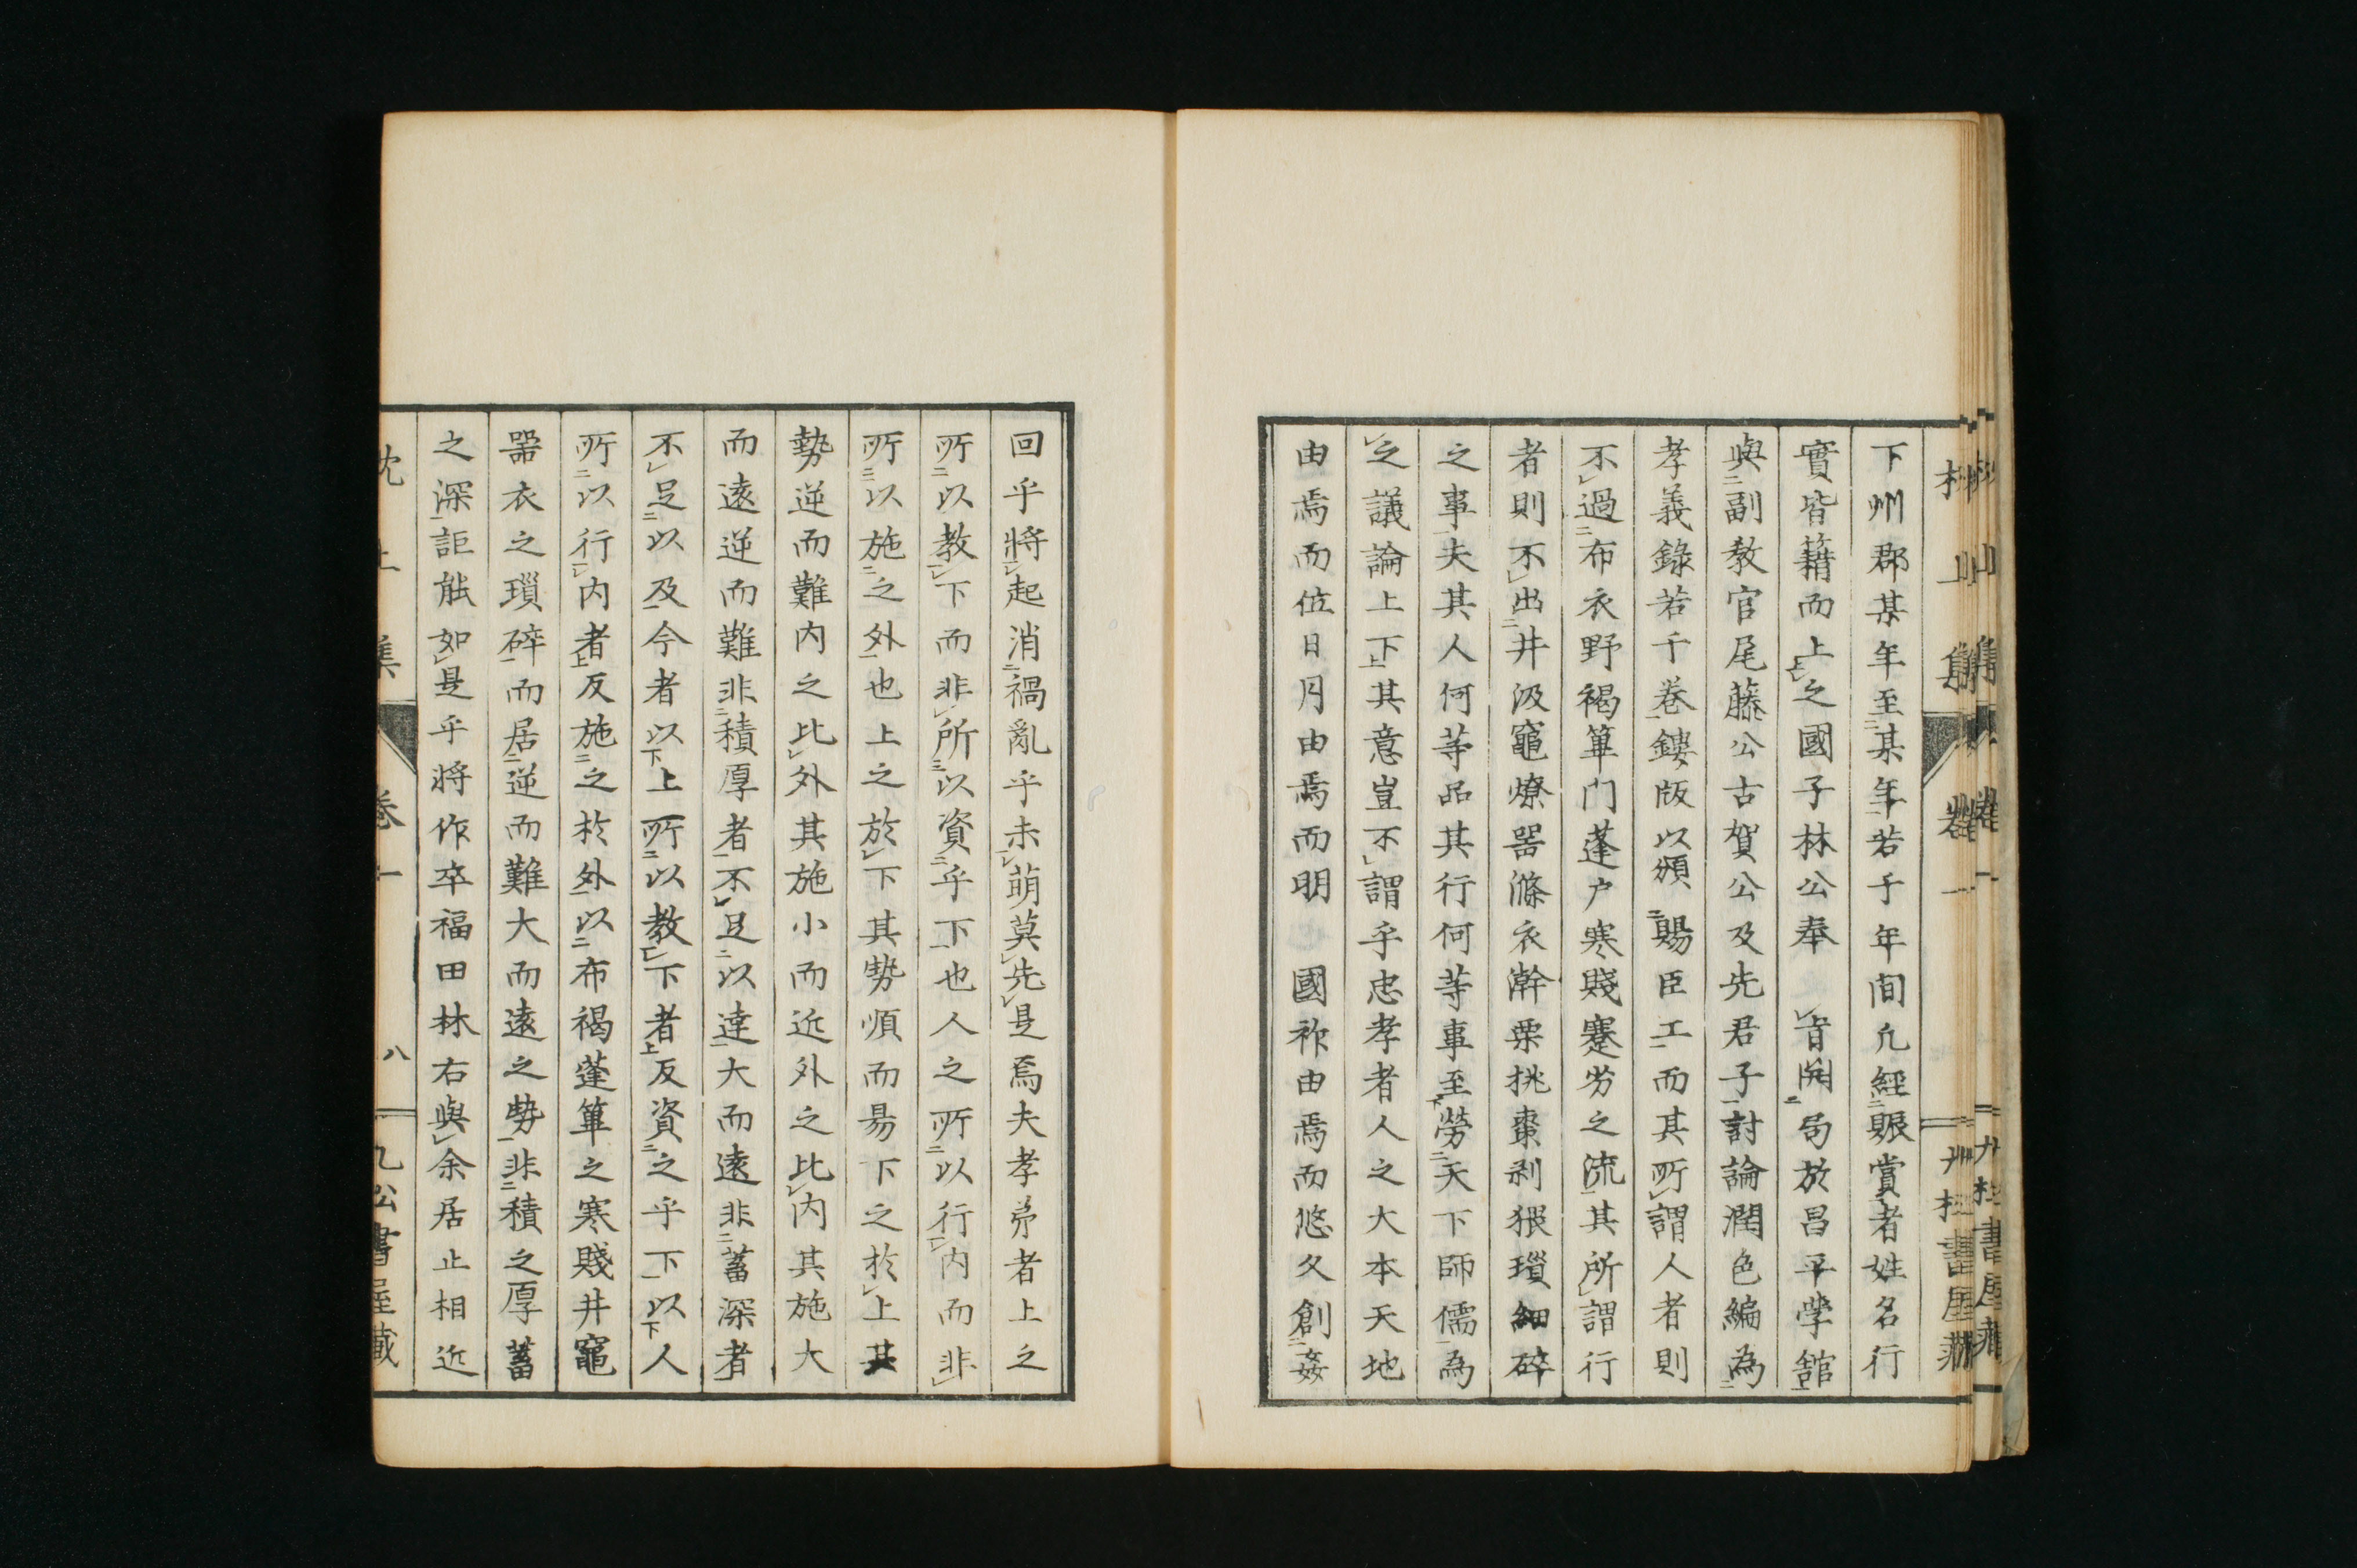 下州郡某年至某年若千年間凢經賑賞者姓名行
實皆籍而上之國子林公奉　旨開局於昌平學舘
與副教官尾藤公古賀公及先君子討論潤色編為
孝義錄若千卷鏤版以頒　賜臣工而其所謂人者則
不過布衣野褐篳門蓬户寒賤蹇劣之流其所謂行
者則不出井汲竈燎器滌衣澣栗挑棗剥猥瑣細碎
之事夫其人何等品其行何等事至勞天下師儒為
之議論上下其意豈不謂乎忠孝者人之大本天地
由焉而位日月由焉而明　國祚由焉而悠久創姦
回乎將起消禍亂乎未萌莫先是焉夫孝弟者上之
所以教下而非所以資乎下也人之所以行内而非
所以施之外也上之於下其勢順而易下之於上其
勢逆而難内之比外其施小而近外之比内其施大
而遠逆而難非積厚者不足以達大而遠非蓄深者
不足以及今者以上所以教下者反資之乎下以人
所以行内者反施之於外以布褐蓬篳之寒賤井竈
器衣之瑣碎而居逆而難大而遠之勢非積之厚蓄
之深詎能如是乎將作卒福田林右與余居止相近
八